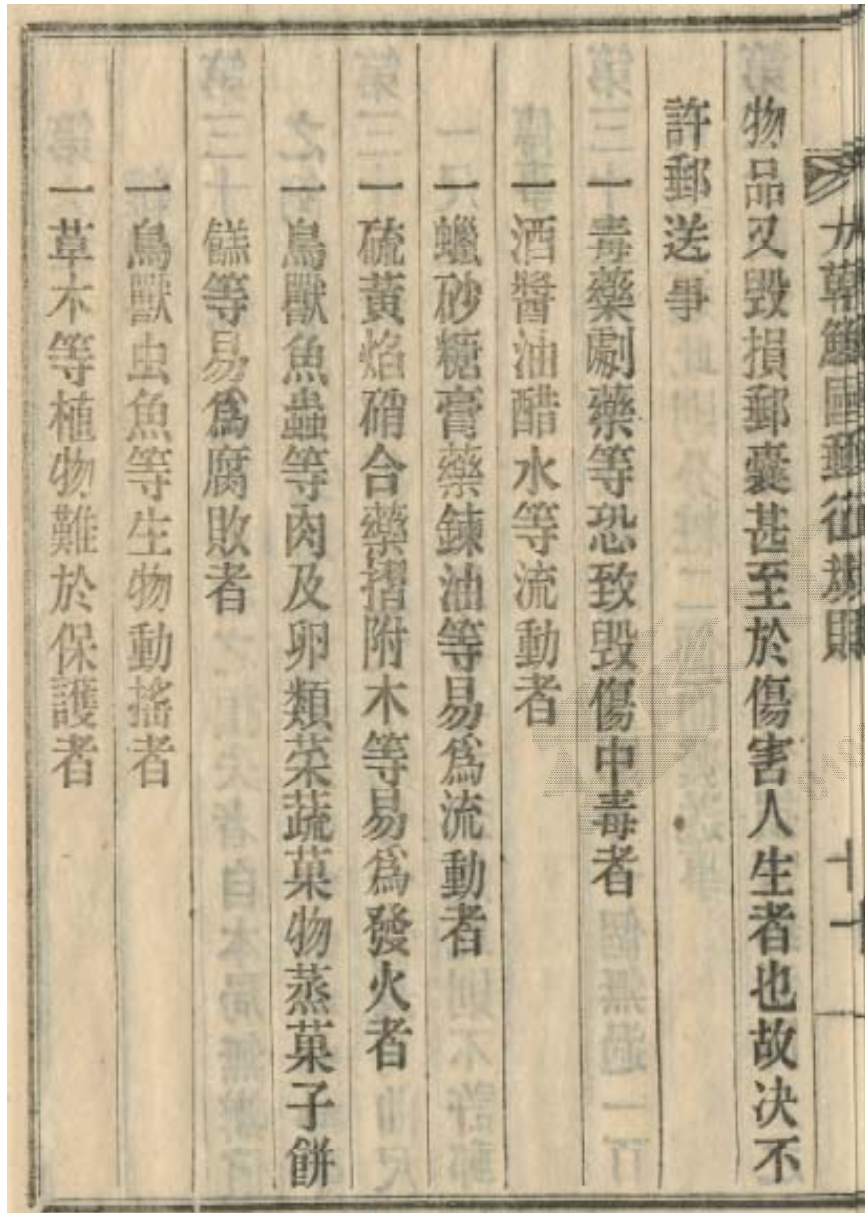 大朝鮮國郵征規則 十一
物品又毀損郵囊甚至於傷害人生者也故決不
許郵送事
一毒藥劇藥等恐致毀傷中毒者
一酒醬油醋水等流動者
一蠟砂糖膏藥鍊油等易爲流動者
一硫黃焰硝合藥摺附木等易爲發火者
一鳥獸魚蟲等肉及卵類菜蔬菓物蒸菓子餠
餻等易爲腐敗者
一鳥獸虫魚等生物動搖者
一草木等植物難於保護者